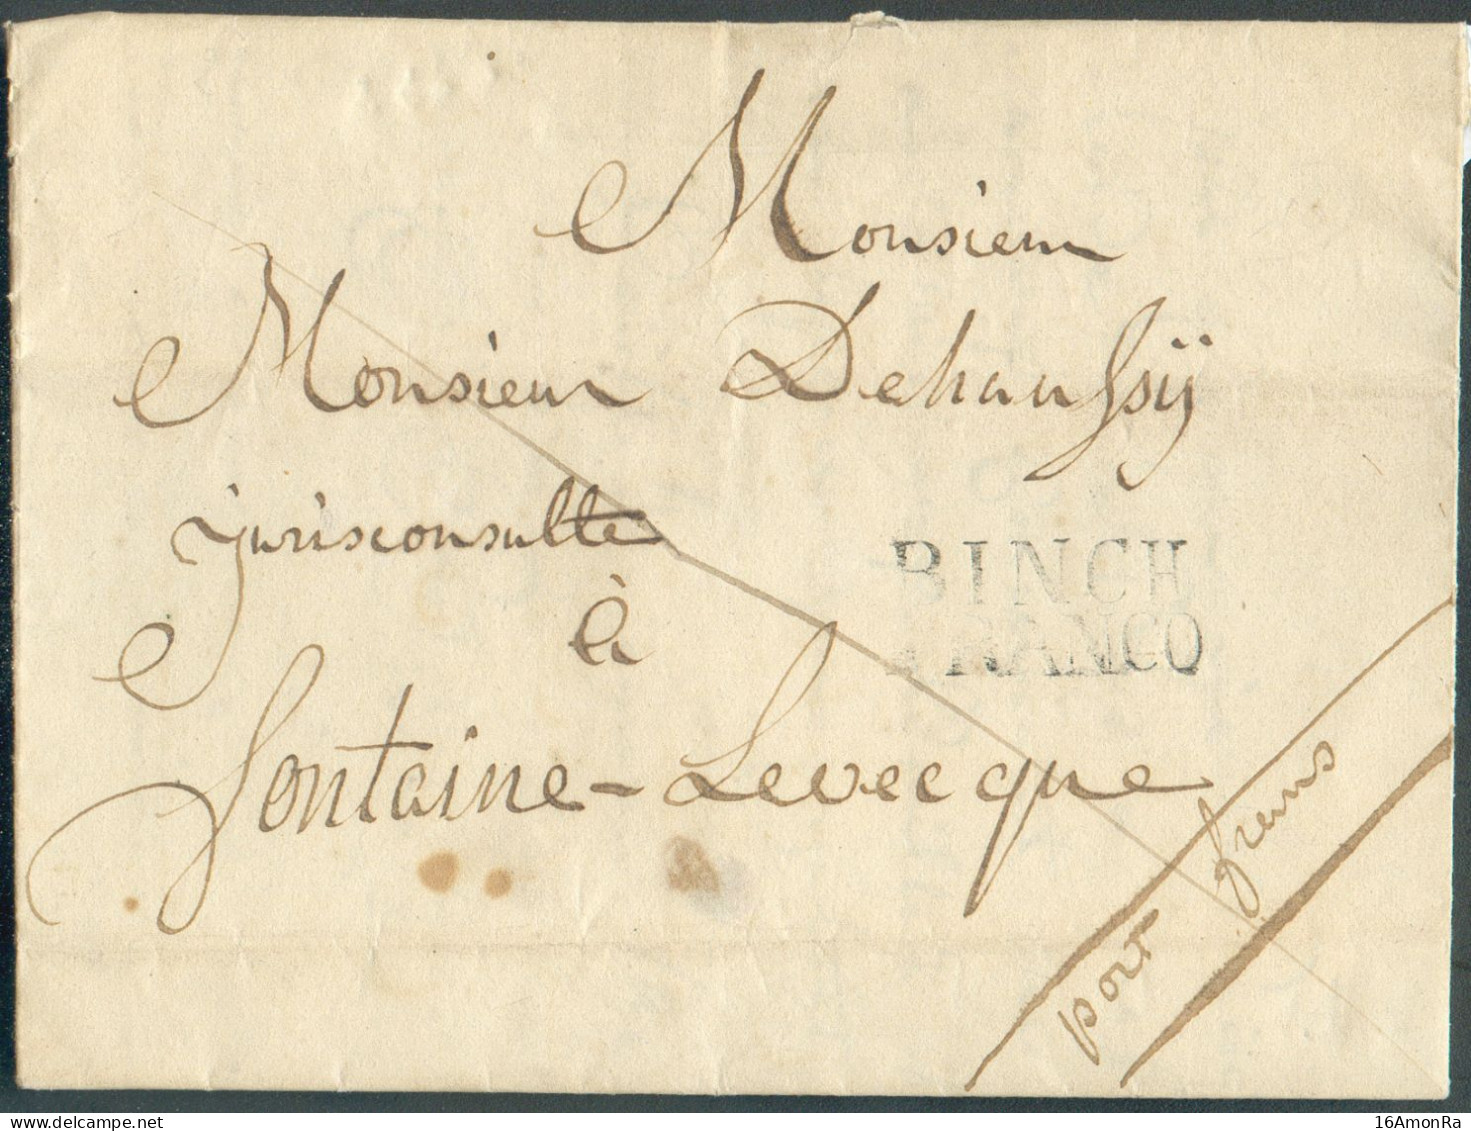 Monsieur
Monsieur Dehaussÿ
jurisconsulte
à
Fontaine-Levecque
BINCH
FRANCO
port
delcampe.net
16AmonRa